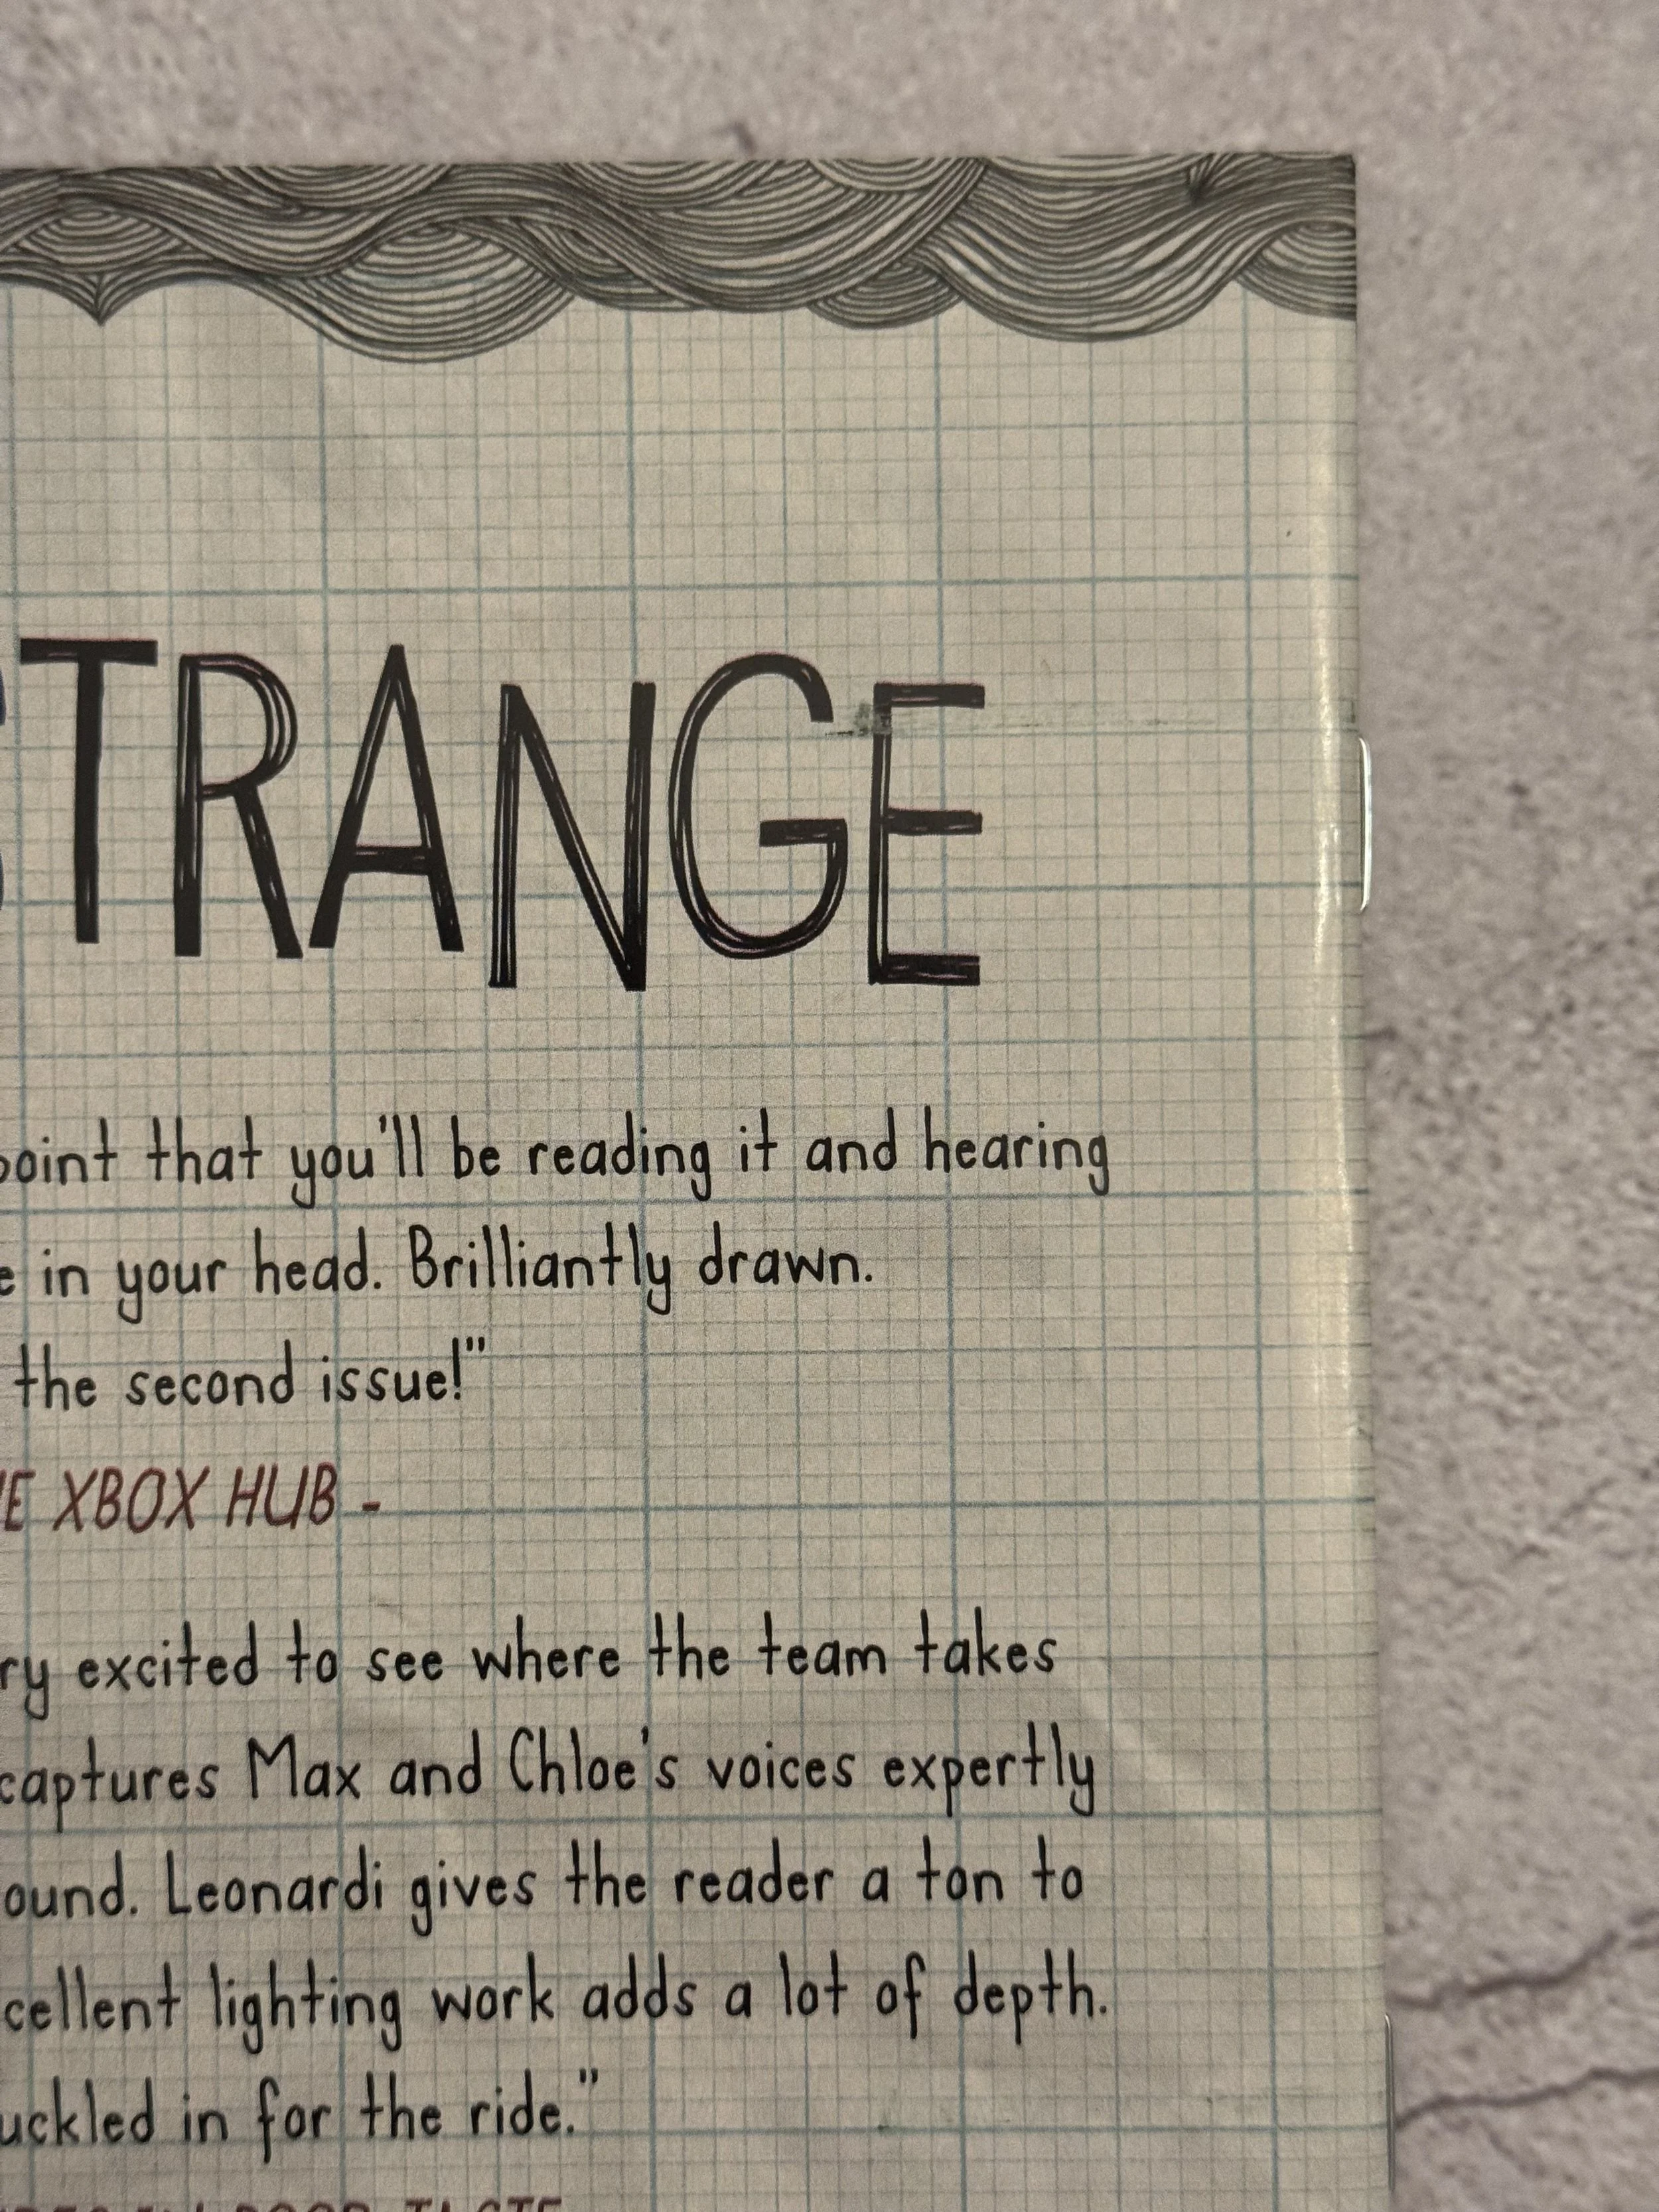 STRANGE
point that you'll be reading it and hearing
e in your head. Brilliantly drawn.
the second issue!"
E XBOX HUB -
ry excited to see where the team takes
captures Max and Chloe's voices expertly
ound. Leonardi gives the reader a ton to
cellent lighting work adds a lot of depth.
uckled in for the ride."
POOR TASTE